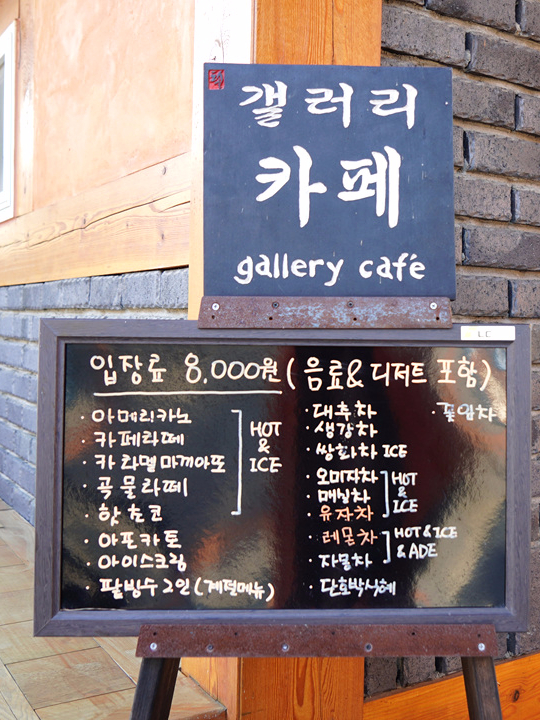 갤러리
카페
gallery café
LC
입장료 8,000원 (음료& 디저트 포함)
· 아메리카노
· 카페라떼
· 카라멜마끼아또
· 곡물라떼
HOT & ICE
· 핫초코
· 아포카토
· 아이스크림
· 팥빙수 2인 (계절메뉴)
· 대추차
· 꽃잎차
· 생강차
· 쌍화차 ICE
· 오미자차
· 매실차
· 유자차
HOT & ICE
· 레몬차
· 자몽차
HOT & ICE & ADE
· 단호박식혜